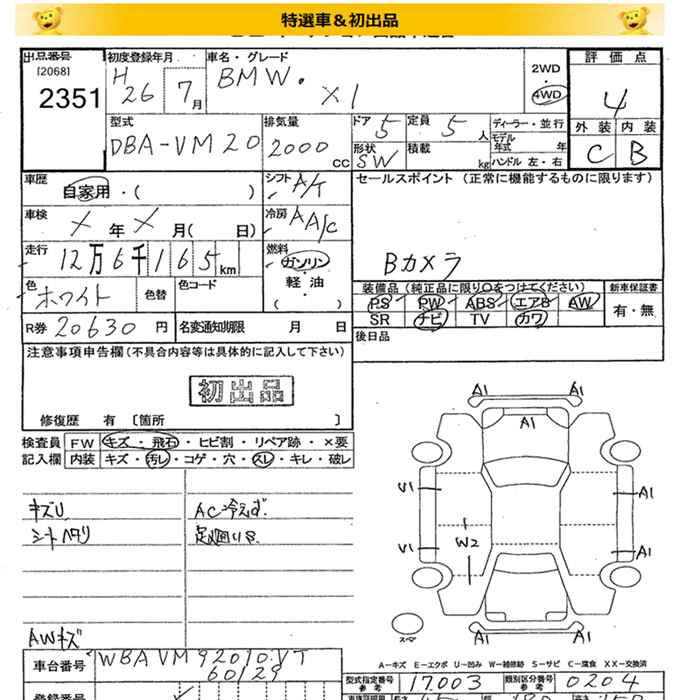 特選車&初出品
出品番号
[2068]
2351
初度登録年月
H 26 7月
車名・グレード
BMW. X1
2WD
4WD
評価点
4
外装 内装
C B
型式
DBA-VM20
排気量
2000cc
ドア 5
定員 5人
ディーラー・並行
モデル年式 年
形状 SW
積載 kg
ハンドル 左・右
車歴
自家用・( )
シフト A/T
冷房 AA/C
セールスポイント (正常に機能するものに限ります)
Bカメラ
車検
X年 X月( 日)
走行
12万6千165km
燃料
ガソリン・
軽油
( )
色
ホワイト
色替
色コード
装備品 (純正品に限り○をつけてください)
新車保証書
PS PW ABS エアB AW
SR ナビ TV カワ
有・無
R券 20630円
名変通知期限 月 日
後日品
注意事項申告欄(不具合内容等は具体的に記入して下さい)
初出品
修復歴 有 〔箇所 〕
検査員
記入欄
FW キズ・飛石・ヒビ割・リペア跡・×要
内装 キズ・汚レ・コゲ・穴・スレ・キレ・破レ
キズU
シートヘタリ
AC冷えず
AWキズ
A1 A1
A1
V1 A1
W2
V1 A1
A1 A1
スペア
A-キズ E-エクボ U-凹み W-補修跡 S-サビ C-腐食 XX-交換済
車台番号
WBAVM92010VT
60129
型式指定番号
参考
17003
類別区分番号
参考
0204